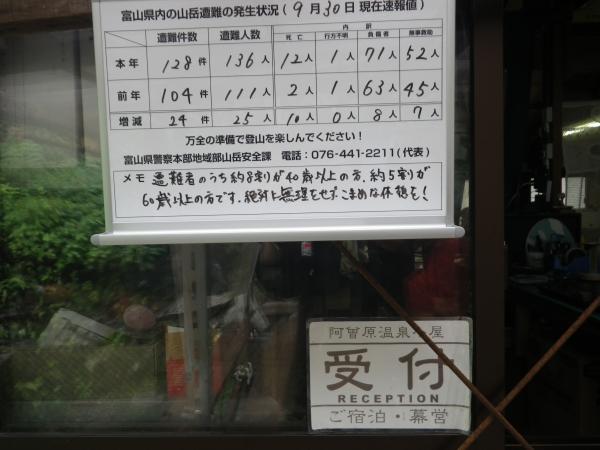 富山県内の山岳遭難の発生状況(9月30日現在速報値)
遭難件数 遭難人数 内訳
死亡 行方不明 負傷者 無事救助
本年 128件 136人 12人 1人 71人 52人
前年 104件 111人 2人 1人 63人 45人
増減 24件 25人 10人 0人 8人 7人
万全の準備で登山を楽しんでください!
富山県警察本部地域部山岳安全課 電話:076-441-2211(代表)
メモ 遭難者のうち約8割が40歳以上の方、約5割が
60歳以上の方です。絶対に無理をせずこまめな休憩を!
阿曽原温泉小屋
受付
RECEPTION
ご宿泊・幕営